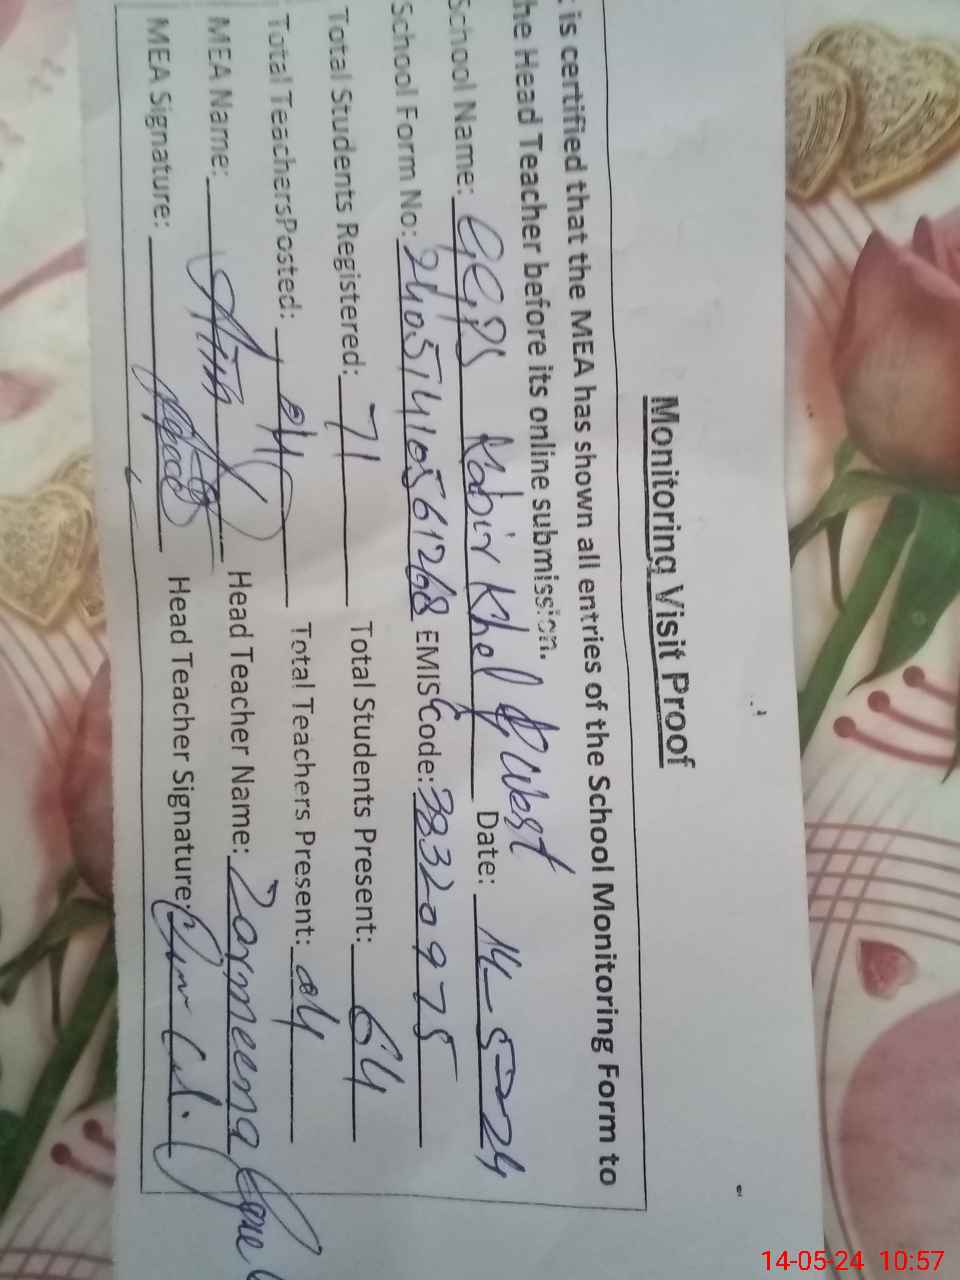 Monitoring Visit Proof
is certified that the MEA has shown all entries of the School Monitoring Form to
he Head Teacher before its online submission.
School Name: GGPS Kabir Khel West Date: 14-5-24
School Form No: 24051410561268 EMISCode: 38320975
Total Students Registered: 71 Total Students Present: 64
Total TeachersPosted: 04 Total Teachers Present: 04
MEA Name: Head Teacher Name: Zarmeena
MEA Signature: Head Teacher Signature:
14-05-24 10:57